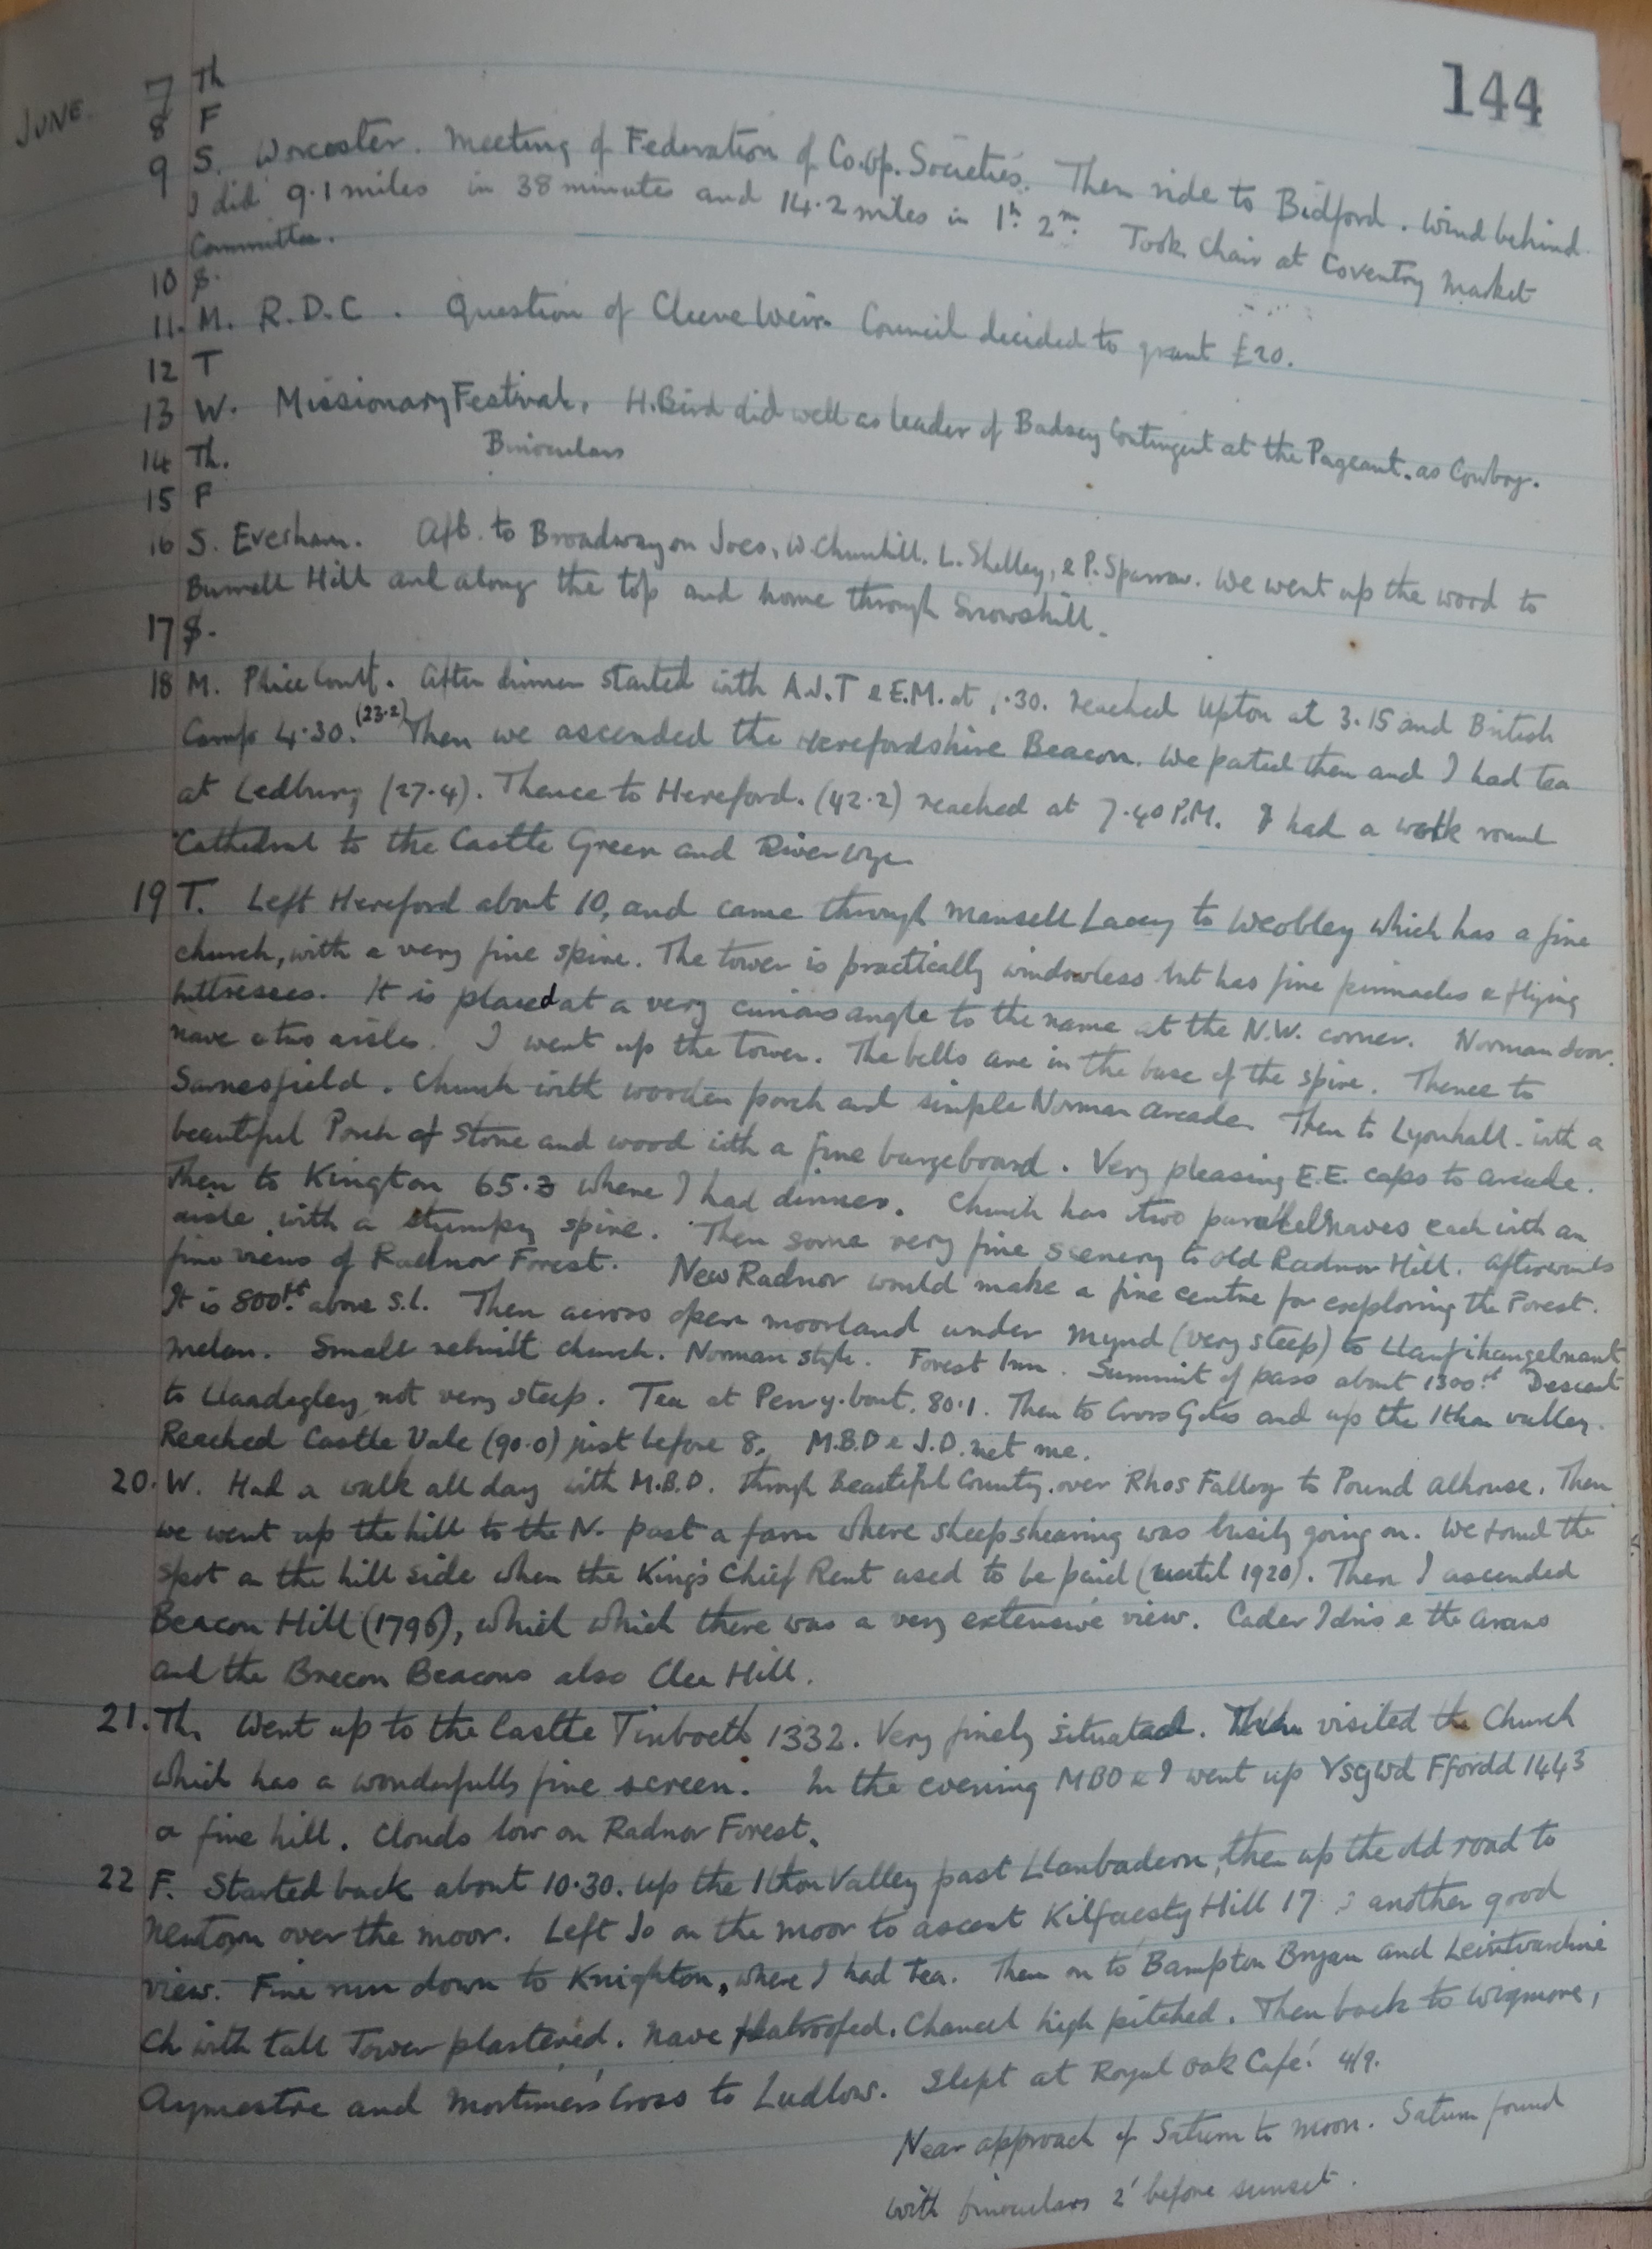 144
JUNE. 7 Th
8 F
9 S. Worcester. Meeting of Federation of Co.op. Societies. Then ride to Bidford. Wind behind
I did 9.1 miles in 38 minutes and 14.2 miles in 1h. 2m. Took Chair at Coventry Market
Committee.
10 S.
11. M. R.D.C. Question of Cleeve Weir. Council decided to grant £20.
12 T
13 W. Missionary Festival. H. Bird did well as leader of Badsey Contingent at the Pageant. as Cowboy.
14 Th. Binoculars
15 F
16 S. Evesham. Aft. to Broadway on Joes, W. Churchill. L. Shelley, & P. Sparrow. We went up the wood to
Burnell Hill and along the top and home through Snowshill.
17 S.
18 M. Police Court. After dinner started with A.J.T & E.M. at .30. reached Upton at 3.15 and British
Camp 4.30. (23.2) Then we ascended the Herefordshire Beacon. We parted then and I had tea
at Ledbury (27.4). Thence to Hereford. (42.2) reached at 7.40 P.M. I had a walk round
Cathedral to the Castle Green and River Wye.
19 T. Left Hereford about 10, and came through Mansell Lacey to Weobley which has a fine
church, with a very fine spire. The tower is practically windowless but has fine pinnacles & flying
buttresses. It is placed at a very curious angle to the name at the N.W. corner. Norman door.
nave & two aisles. I went up the tower. The bells are in the base of the spire. Thence to
Sarnesfield. Church with wooden porch and simple Norman arcade. Then to Lyonhall - with a
beautiful Porch of stone and wood ith a fine bargeboard. Very pleasing E.E. caps to arcade.
Then to Kington 65.3 where I had dinner. Church has two parallel naves each with an
aisle with a stumpy spire. Then some very fine scenery to old Radnor Hill. Afterwards
fine views of Radnor Forest. New Radnor would make a fine centre for exploring the Forest.
It is 800ft. above S.L. Then across open moorland under Mynd (very steep) to Llanfihangelnant
melan. Small rebuilt church. Norman style. Forest Inn. Summit of pass about 1300ft Descent
to Llandegley not very steep. Tea at Penybont. 80.1. Then to Cross Gates and up the Ithon valley.
Reached Castle Vale (90.0) just before 8. M.B.D & J.D. met me.
20. W. Had a walk all day with M.B.D. through Beautiful Country. over Rhos Fallog to Pound Alhouse. Then
we went up the hill to the N. past a farm where sheepshearing was busily going on. We found the
spot on the hill side when the King's Chief Rent used to be paid (until 1920). Then I ascended
Beacon Hill (1796), which which there was a very extensive view. Cader Idris & the Arans
and the Brecon Beacons also Clee Hill.
21. Th. Went up to the Castle Tinboeth 1332. Very finely situated. Then visited the Church
which has a wonderfully fine screen. In the evening MBD & I went up Ysgwd Ffordd 1443
a fine hill. Clouds low on Radnor Forest.
22 F. Started back about 10.30. up the Ithon Valley past Llanbadarn, then up the old road to
Newtown over the moor. Left Jo on the moor to ascent Kilfaesty Hill 17 another good
view. Fine run down to Knighton, where I had tea. Then on to Bampton Bryan and Leintwardine
Ch with tall Tower plastered. Nave flatroofed. Chancel high pitched. Then back to Wigmore,
Aymestre and Mortimer's Cross to Ludlow. Slept at Royal Oak Café. 4/9.
Near approach of Saturn to moon. Saturn found
with binoculars 2' before sunset.